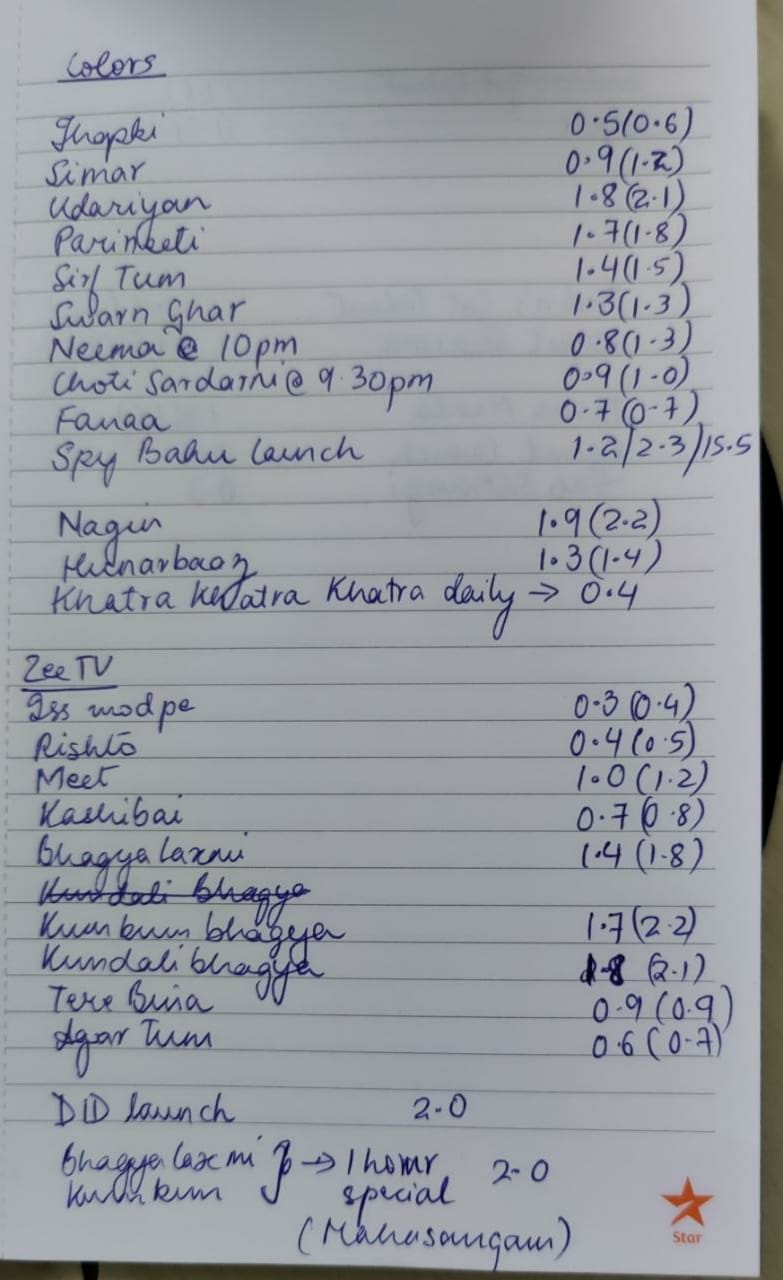 Colors
Thapki 0.5(0.6)
Simar 0.9(1.2)
Udariyan 1.8(2.1)
Parineeti 1.7(1.8)
Sirf Tum 1.4(1.5)
Swarn Ghar 1.3(1.3)
Neema @ 10pm 0.8(1.3)
Choti Sardarni @ 9.30pm 0.9(1.0)
Fanaa 0.7(0.7)
Spy Bahu launch 1.2/2.3/15.5
Nagin 1.9(2.2)
Hunarbaaz 1.3(1.4)
Khatra Khatra Khatra daily → 0.4
Zee TV
Iss mod pe 0.3(0.4)
Rishto 0.4(0.5)
Meet 1.0(1.2)
Kashibai 0.7(0.8)
Bhagya laxmi 1.4(1.8)
Kundali bhagya
Kumkum bhagya 1.7(2.2)
Kundali bhagya 1.8 (2.1)
Tere Bina 0.9(0.9)
Agar Tum 0.6(0.7)
DID launch 2.0
Bhagya laxmi } → 1 hour 2.0
Kumkum special
(Mahasangam)
Star